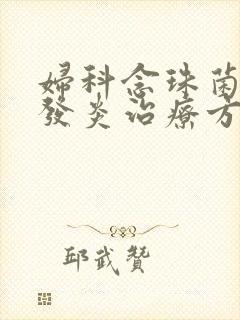 婦科念珠菌
發炎治療方
邱武贊